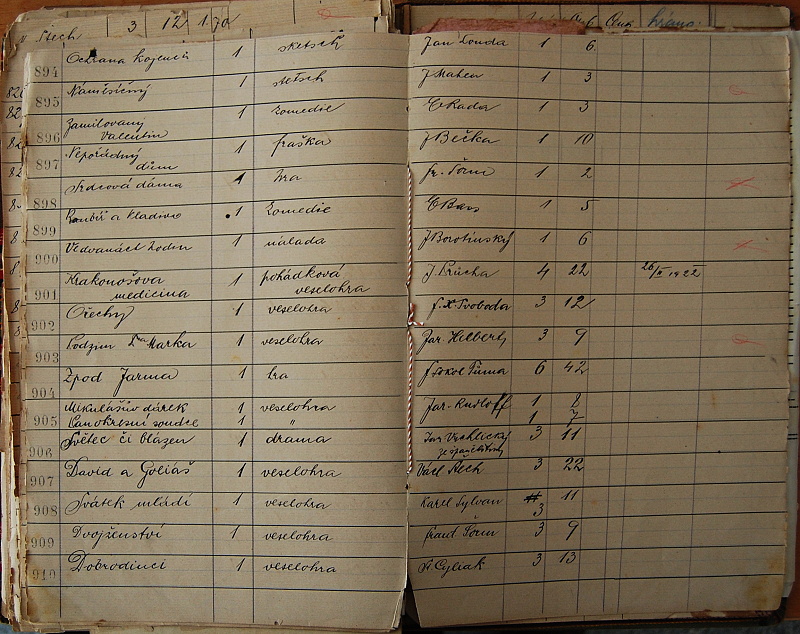 Štech 3 12 1.70
894 Ochrana kojenců 1 sketsch Jan Louda 1 6
895 Naměsíčný 1 sketsch J Mahen 1 3
896 Zamilovaný Valentin 1 komedie E Rada 1 3
897 Nepořádný dům 1 fraška J Bečka 1 10
898 Srdcová dáma 1 hra Fr. Šorm 1 2
899 a kladivo 1 komedie E Bass 1 5
900 Ve dvanáct hodin 1 nálada J Borotínský 1 6
901 Krakonošova medicina 1 pohádková veselohra J. Průcha 4 22 26/II 1922
902 Ořechy 1 veselohra F. X. Svoboda 3 12
903 Podzim Dra Marka 1 veselohra Jar. Hilbert 3 9
904 Zpod Jarma 1 hra F Sokol Tůma 6 42
905 Mikulášův dárek 1 veselohra Jar. Rudloff 1 8
Pan okresní soudce 1 " 1 7
906 Světec či blázen 1 drama Jar Vrchlický 3 11
ze španělštiny
907 David a Goliáš 1 veselohra Václ Štech 3 22
908 Svátek mládí 1 veselohra Karel Sylvan 3 11
909 Dvojženství 1 veselohra Frant Šorm 3 9
910 Dobrodinci 1 veselohra Cyliak 3 13